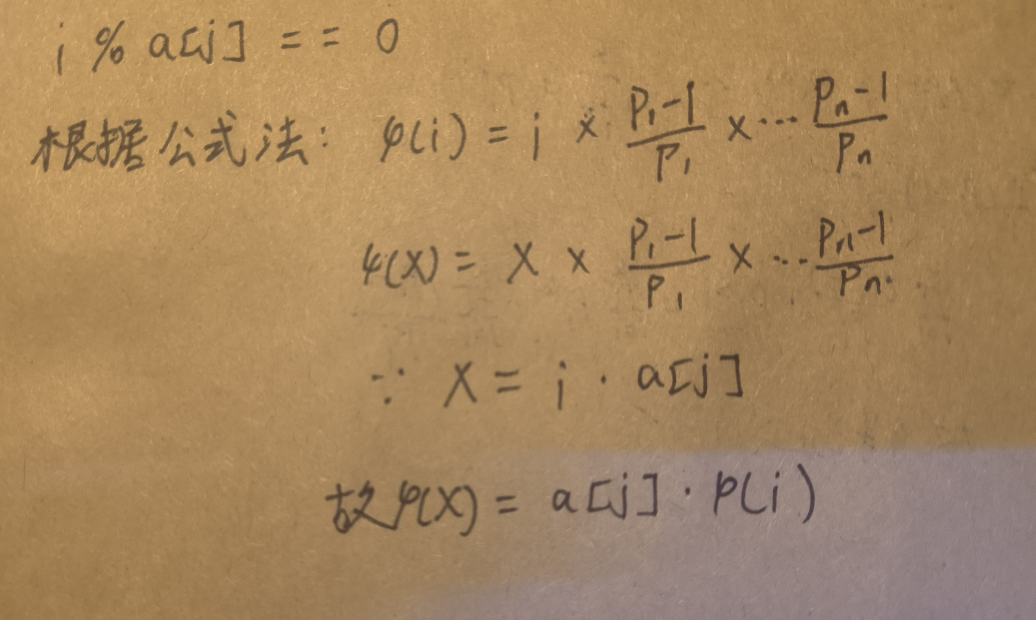 i % a[j] == 0
根据公式法: φ(i) = i × (P₁-1)/P₁ × ··· (Pₙ-1)/Pₙ
φ(X) = X × (P₁-1)/P₁ × ··· (Pₙ-1)/Pₙ
∵ X = i · a[j]
故φ(X) = a[j] · φ(i)